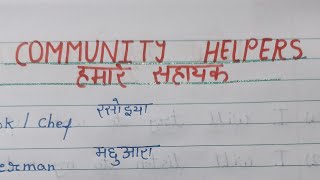 COMMUNITY HELPERS
हमारे सहायक
/ Chef रसोइया
मछुआरा